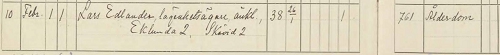 10 Febr. 1 1 Lars Edlander, lägenhetsägare, änkl., 38 26/1 1 761 Ålderdom
Eklunda 2, Skövid 2